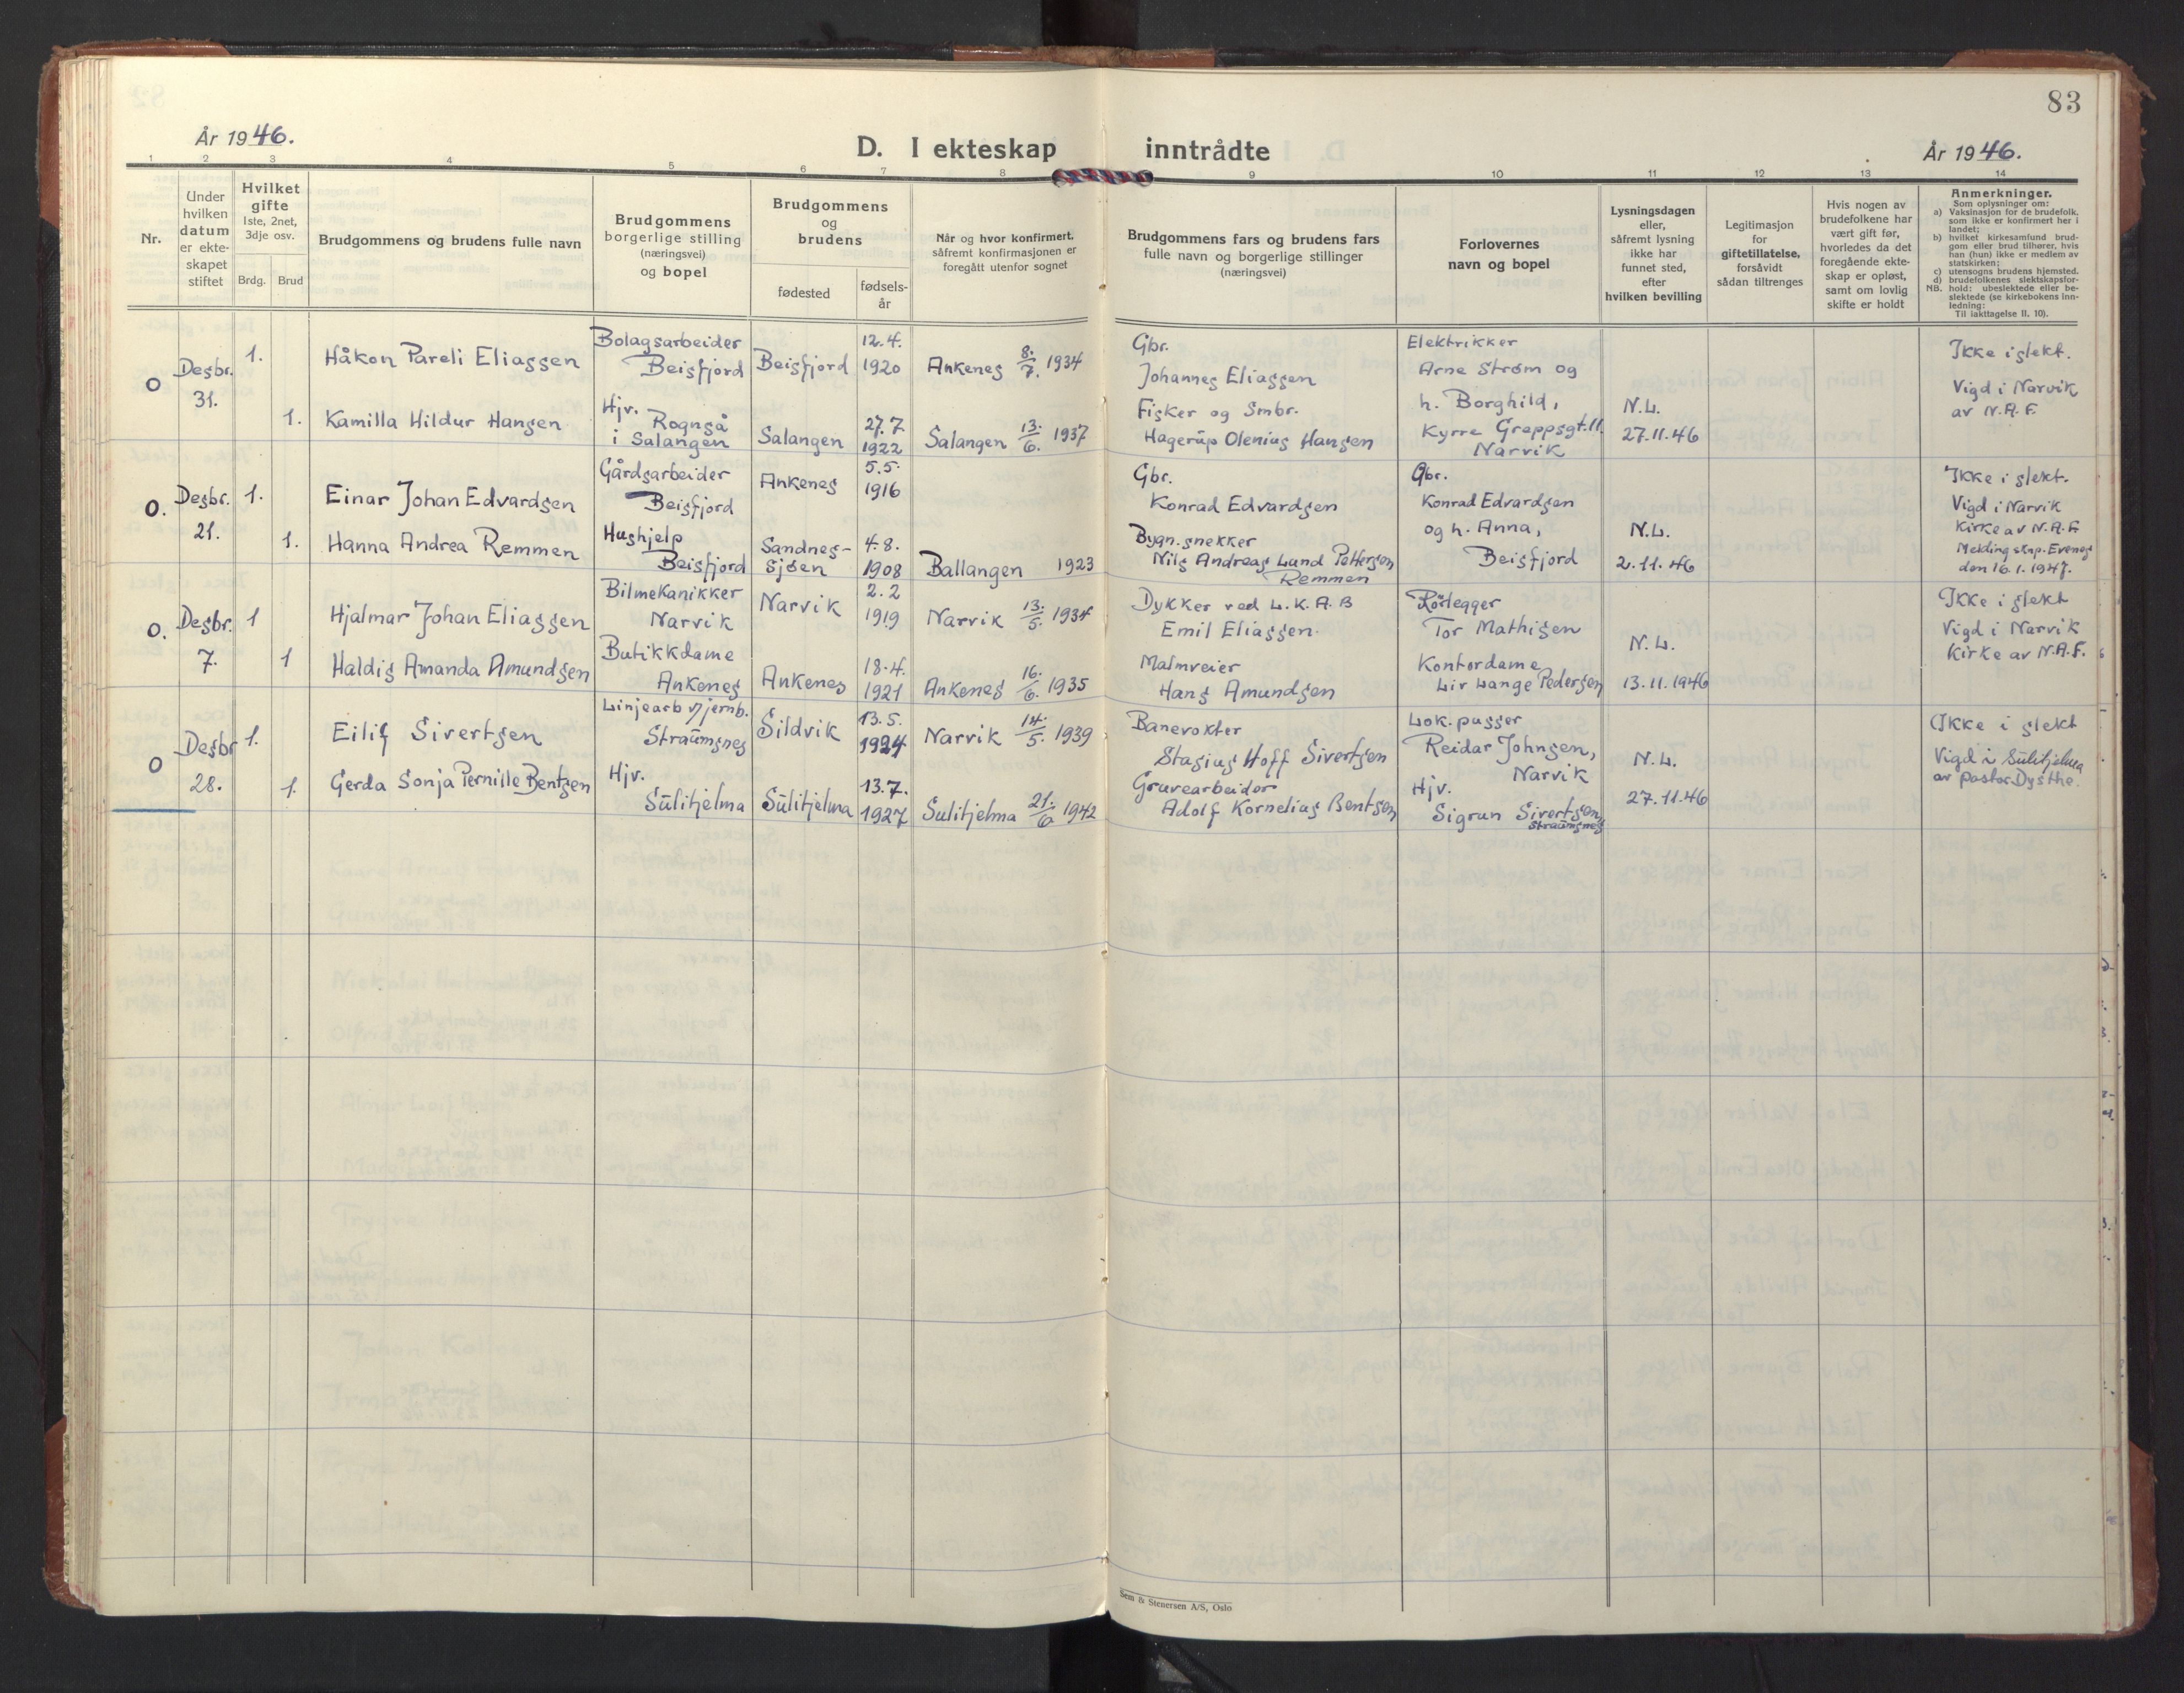 83
År 1946.
D. I ekteskap inntrådte
År 1946.
1 2 3 4 5 6 7 8 9 10 11 12 13 14
Nr.
Under
hvilken
datum
er ekte-
skapet
stiftet
Hvilket
gifte
1ste, 2net,
3dje osv.
Brdg. Brud
Brudgommens og brudens fulle navn
Brudgommens
borgerlige stilling
(næringsvei)
og bopel
Brudgommens
og
brudens
fødested
fødsels-
år
Når og hvor konfirmert,
såfremt konfirmasjonen er
foregått utenfor sognet
Brudgommens fars og brudens fars
fulle navn og borgerlige stillinger
(næringsvei)
Forlovernes
navn og bopel
Lysningsdagen
eller,
såfremt lysning
ikke har
funnet sted,
efter
hvilken bevilling
Legitimasjon
for
giftetillatelse,
forsåvidt
sådan tiltrenges
Hvis nogen av
brudefolkene har
vært gift før,
hvorledes da det
foregående ekte-
skap er opløst,
samt om lovlig
skifte er holdt
Anmerkninger.
Som oplysninger om:
a) Vaksinasjon for de brudefolk.
som ikke er konfirmert her i
landet;
b) hvilket kirkesamfund brud-
gom eller brud tilhører, hvis
han (hun) ikke er medlem av
statskirken;
c) utensogns brudens hjemsted.
d) brudefolkenes slektskapsfor-
NB. hold: ubeslektede eller be-
slektede (se kirkebokens inn-
ledning:
Til iakttagelse II. 10).
O
Desbr.
31.
1.
Håkon Pareli Eliassen
Bolagsarbeider
Beisfjord
Beisfjord
12.4.
1920
Ankenes 8./7. 1934
Gbr.
Johannes Eliassen
Elektrikker
Arne Strøm og
h. Borghild,
Kyrre Greppsgt. 11.
Narvik
N.L.
27.11.46
Ikke i slekt.
Vigd i Narvik
av N.A.F.
1.
Kamilla Hildur Hansen
Hjv.
Rognså
i Salangen
Salangen
27.7
1922
Salangen 13./6. 1937
Fisker og Smbr.
Hagerup Olenius Hansen
O.
Desbr.
21.
1.
Einar Johan Edvardsen
Gårdsarbeider
Beisfjord
Ankenes
5.5.
1916
Gbr.
Konrad Edvardsen
Gbr.
Konrad Edvardsen
og h. Anna,
Beisfjord
N.L.
2.11.46
Ikke i slekt.
Vigd i Narvik
Kirke av N.A.F.
Melding sknp. Evenes
den 16.1.1947.
1.
Hanna Andrea Remmen
Hushjelp
Beisfjord
Sandnes-
sjøen
4.8.
1908
Ballangen 1923
Bygn.snekker
Nils Andreas Lund Pettersen
Remmen
O.
Desbr.
7.
1
Hjalmar Johan Eliassen
Bilmekanikker
Narvik
Narvik
2.2
1919
Narvik 13./5. 1934
Dykker ved L.K.A.B
Emil Eliassen.
Rørlegger
Tor Mathisen
Kontordame
Liv Lange Pedersen
N.L.
13.11.1946
Ikke i slekt
Vigd i Narvik
Kirke av N.A.F.
1
Haldis Amanda Amundsen
Butikkdame
Ankenes
Ankenes
18.4.
1921
Ankenes 16./6. 1935
Malmveier
Hans Amundsen
O
Desbr
28.
1.
Eilif Sivertsen
Linjearb v/jernb.
Straumsnes
Sildvik
13.5.
1924
Narvik 14./5. 1939
Banevokter
Stasius Hoff Sivertsen
Lok.pusser
Reidar Johnsen,
Narvik
Hjv.
Sigrun Sivertsen,
Straumsnes
N.L.
27.11.46
Ikke i slekt
Vigd i Sulitjelma
av pastor Dysthe.
1.
Gerda Sonja Pernille Bentsen
Hjv.
Sulitjelma
Sulitjelma
13.7.
1927
Sulitjelma 21./6 1942
Gruvearbeider
Adolf Kornelius Bentsen
Sem & Stenersen A/S, Oslo